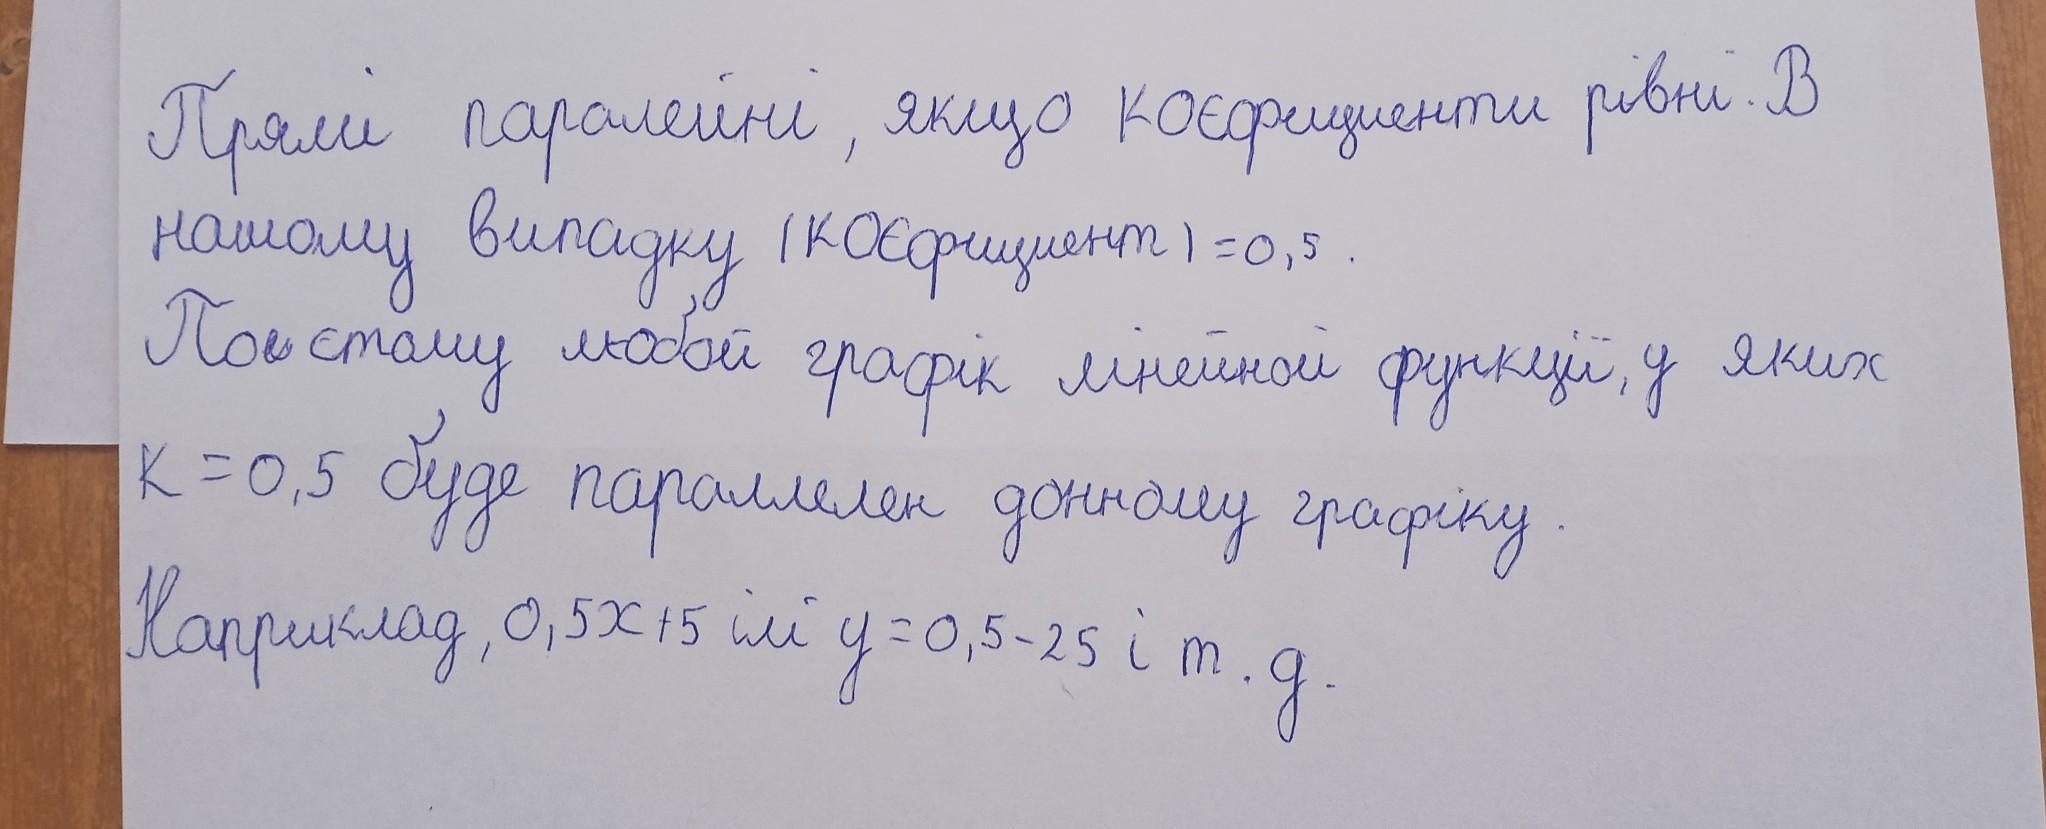 Прямі паралейні, якщо коєфициенти рівні. В
нашому випадку (коєфициент) = 0,5.
Поєтому любой графік лінейной функції, у яких
к = 0,5 буде параллелен данному графіку.
Наприклад, 0,5х+5 ілі у = 0,5-25 і т. д.